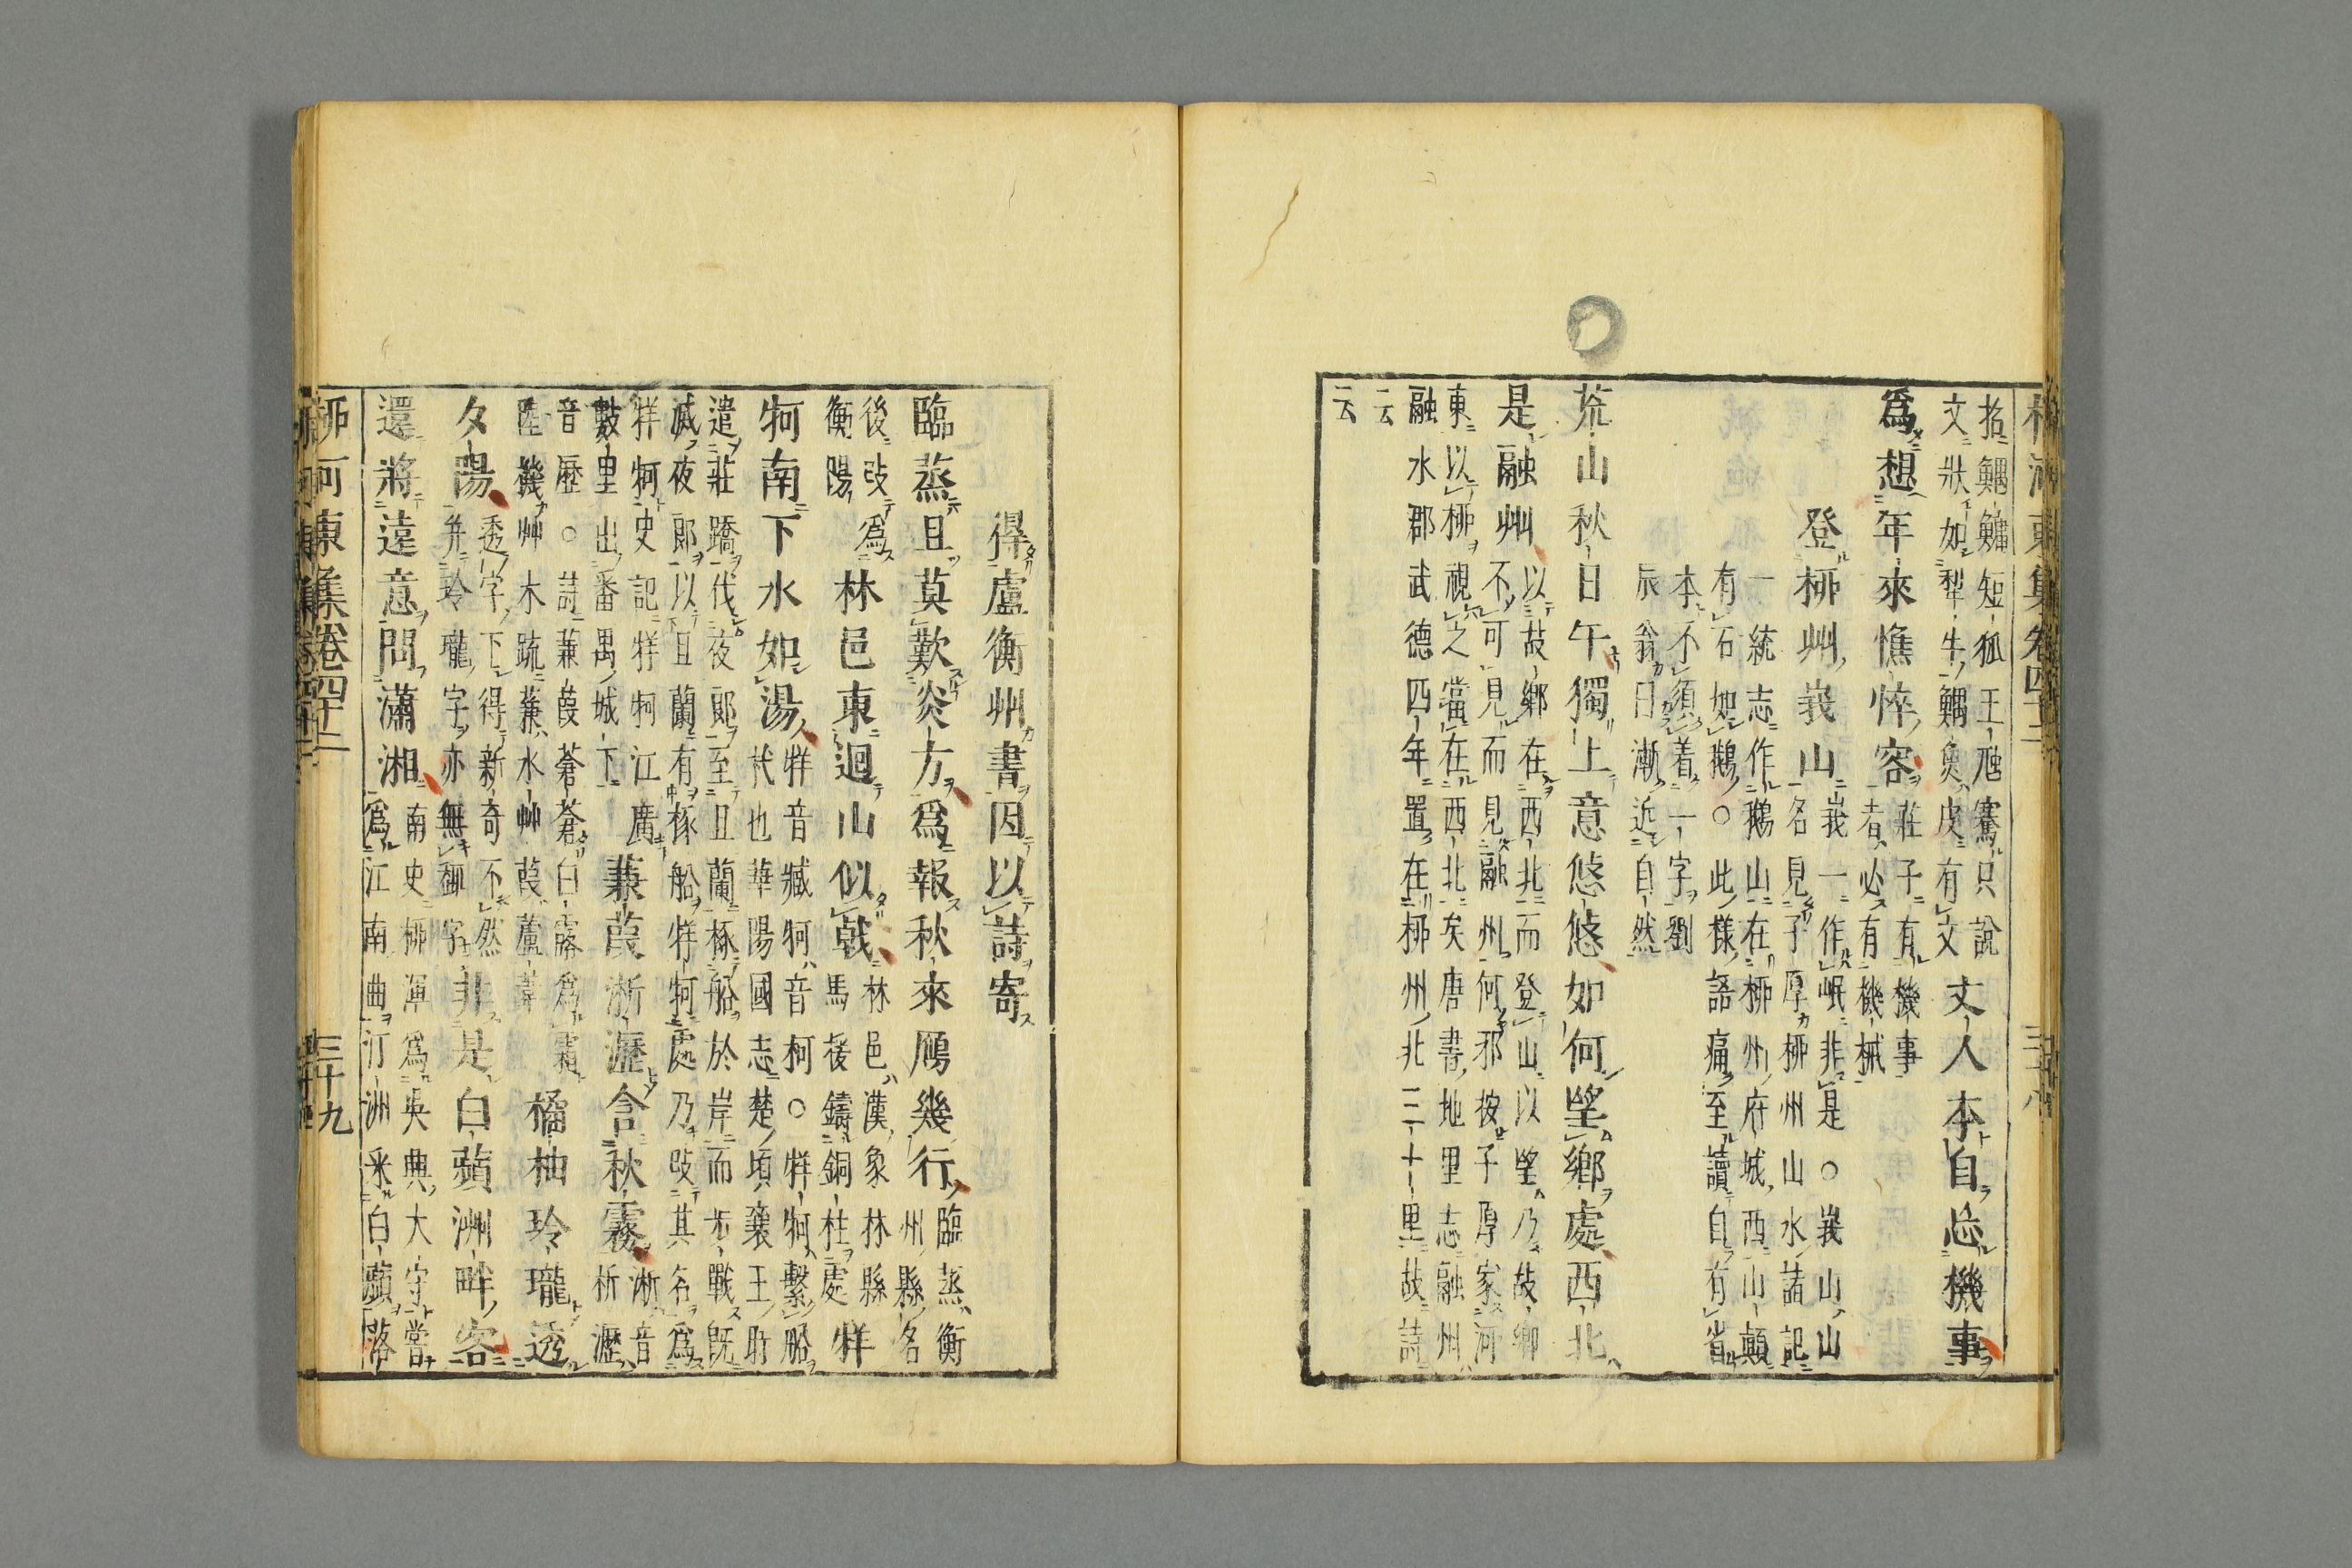 柳河東集卷四十二 三十八
指鰅鱅短狐王虺騫只說
文狀如犂牛鰅魚皮有文
文人本自忘機事
爲想年來憔悴容
莊子有機事
者必有機械
登柳州峩山
峩一作岷非是○峩山山
名見子厚柳州山水諸記
一統志作鵝山在柳州府城西山顛
有石如鵝○此樣語痛至讀自有省
本不須着一字劉
辰翁曰漸近自然
荒山秋日午獨上意悠悠如何望鄉處西北
是融州
以故鄉在西北而登山以望乃故鄉
不可見而見融州何邪按子厚家河
東以柳視之當在西北矣唐書地里志融州
融水郡武德四年置在柳州北三十里故詩
云
云
得盧衡州書因以詩寄
臨蒸且莫歎炎方爲報秋來鴈幾行
臨蒸衡
州縣名
後改爲
衡陽
林邑東迴山似戟
林邑漢象林縣
馬援鑄銅柱處
牂
牁南下水如湯
牂音臧牁音柯○牂牁繫船
杙也華陽國志楚頃襄王時
遣莊蹻伐夜郎至且蘭椓船於岸而步戰既
滅夜郎以且蘭有椓船牂牁處乃改其名爲
牂牁史記牂牁江廣
數里出番禺城下
蒹葭淅瀝含秋霧
淅音
析瀝
音歷○詩蒹葭蒼蒼白露爲霜
陸機艸木疏蒹水艸葭蘆葦
橘柚玲瓏透
夕陽
透字下得新奇不然
并玲瓏字亦無𦂳字
非是白蘋洲畔客
還將遠意問瀟湘
南史柳渾爲吳興太守嘗
爲江南曲汀洲采白蘋落
柳河東集卷四十二 三十九